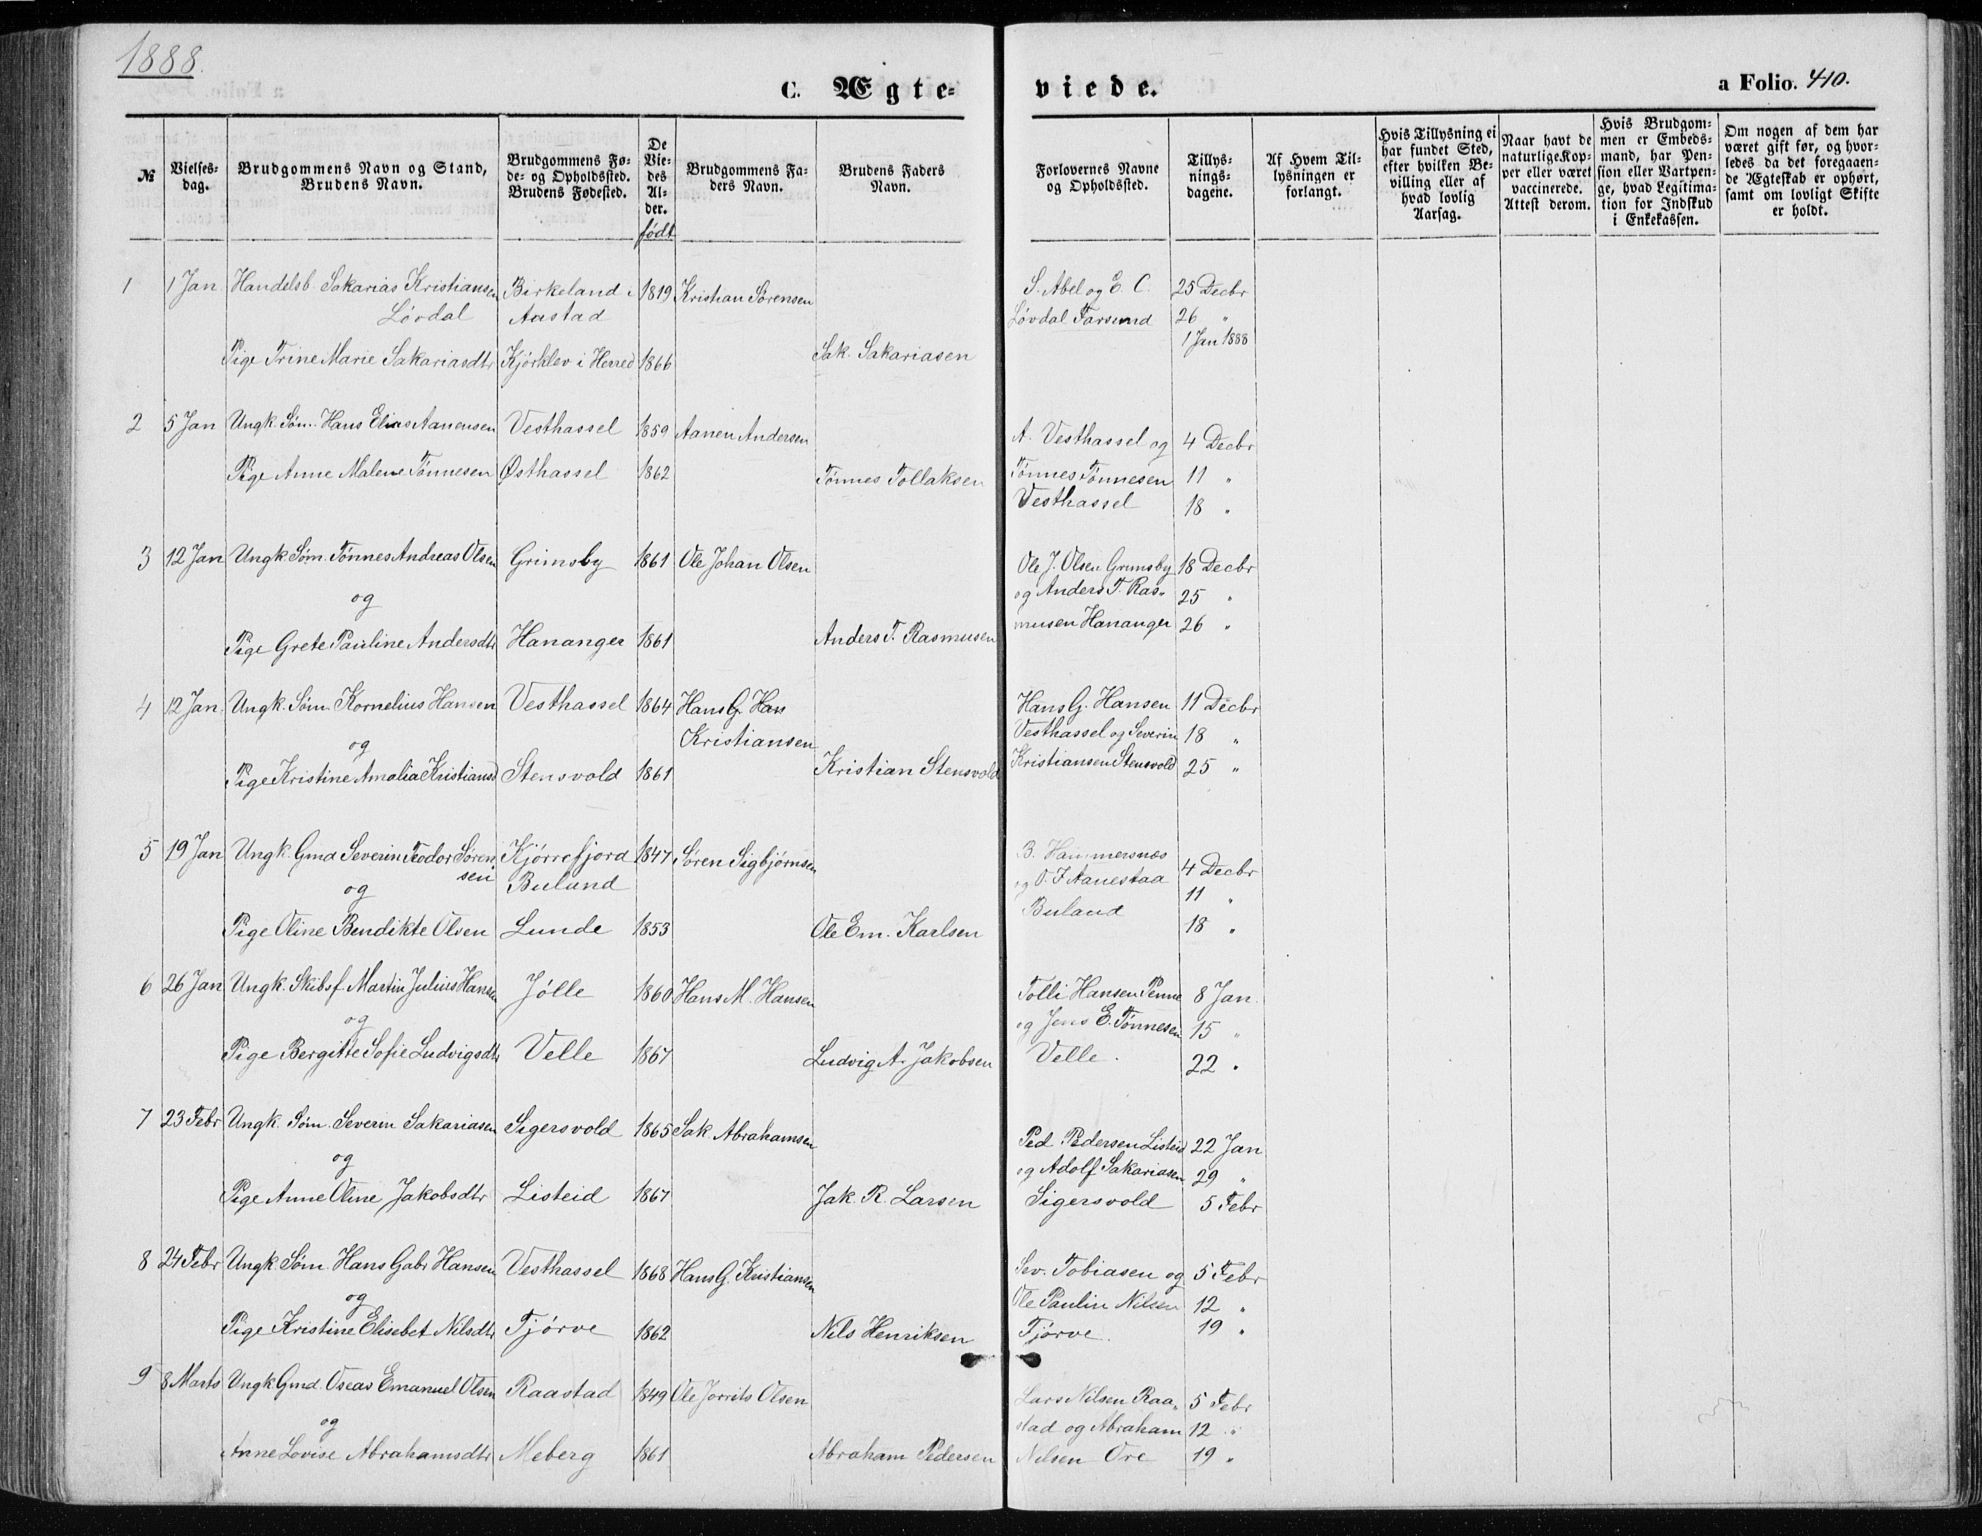 1888.
C. Ægte-
viede.
a Folio. 410.
№
Vielses-
dag.
Brudgommens Navn og Stand,
Brudens Navn.
Brudgommens Fø-
de- og Opholdssted.
Brudens Fødested.
De
Vie-
des
Al-
der.
født
Brudgommens Fa-
ders Navn.
Brudens Faders
Navn.
Forlovernes Navne
og Opholdssted.
Tillys-
nings-
dagene.
Af Hvem Til-
lysningen er
forlangt.
Hvis Tillysning ei
har fundet Sted,
efter hvilken Be-
villing eller af
hvad lovlig
Aarsag.
Naar havt de
naturlige Kop-
per eller været
vaccinerede.
Attest derom.
Hvis Brudgom-
men er Embeds-
mand, har Pen-
sion eller Vartpen-
ge, hvad Legitima-
tion for Indskud
i Enkekassen.
Om nogen af dem har
været gift før, og hvor-
ledes da det foregaaen-
de Ægteskab er ophørt,
samt om lovligt Skifte
er holdt.
1 1 Jan Handelsb. Sakarias Kristiansen Birkeland i 1819 Kristian Sørensen S. Abel og E. C. 25 Decbr
Lövdal Aastad Lövdal Farsund 26 "
1 Jan 1888
Pige Trine Marie Sakariasdtr Kjörklev i Herred 1866 Sak. Sakariasen
2 5 Jan Ungk. Søm. Hans Elias Aanensen Vesthassel 1859 Aanen Andersen A. Vesthassel og 4 Decbr
Pige Anne Malene Tønnesen Østhassel 1862 Tønnes Tollaksen Tønnes Tønnesen 11 "
Vesthassel 18 "
3 12 Jan Ungk. Søm. Tønnes Andreas Olsen Grimsby 1861 Ole Johan Olsen Ole J. Olsen Grimsby 18 Decbr
og og Anders T. Ras- 25 "
Pige Grete Pauline Andersdtr Hananger 1861 Anders T. Rasmusen musen Hananger 26 "
4 12 Jan. Ungk. Søm. Kornelius Hansen Vesthassel 1864 Hans G. Han Hans G. Hansen 11 Decbr
og Kristiansen Vesthassel og Severin 18 "
Pige Kristine Amalia Kristiansd Stensvold 1861 Kristian Stensvold Kristiansen Stensvold 25 "
5 19 Jan Ungk. Gmd Severin Teodor Søren Kjørrefjord 1847 Søren Sigbjørnsen B. Hammersnæs 4 Decbr
sen Buland og O. J. Aanestaa 11 "
og Buland
Pige Oline Bendikte Olsen Lunde 1853 Ole Em. Karlsen 18 "
6 26 Jan Ungk. Skibsf Martin Julius Hansen Jølle 1860 Hans M. Hansen Tolli Hansen Penne 8 Jan.
og og Jens E. Tønnesen 15 "
Pige Bergitte Sofie Ludvigsdtr Velle 1867 Ludvig A. Jakobsen Velle. 22 "
7 23 Febr Ungk. Søm. Severin Sakariasen Sigersvold 1865 Sak. Abrahamsen Ped Pedersen Listeid 22 Jan
og og Adolf Sakariasen 29 "
Pige Anne Oline Jakobsdtr Listeid 1867 Jak. R. Larsen Sigersvold 5 Febr
8 24 Febr Ungk. Søm. Hans Gabr Hansen Vesthassel 1868 Hans G. Kristiansen Sev. Tobiasen og 5 Febr
og Ole Paulin Nilsen 12 "
Pige Kristine Elisebet Nilsdtr Tjørve 1862 Nils Henriksen Tjørve. 19 "
9 8 Marts Ungk Gmd. Oseas Emanuel Olsen Raastad 1849 Ole Jorrits Olsen Lars Nilsen Raa- 5 Febr
og stad og Abraham 12 "
Anne Lovise Abrahamsdtr Meberg 1861 Abraham Pedersen Nilsen Ore 19 "